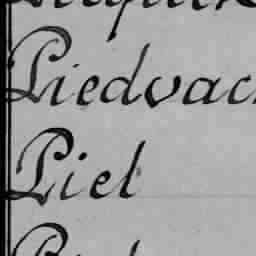 Piedvac
Piel